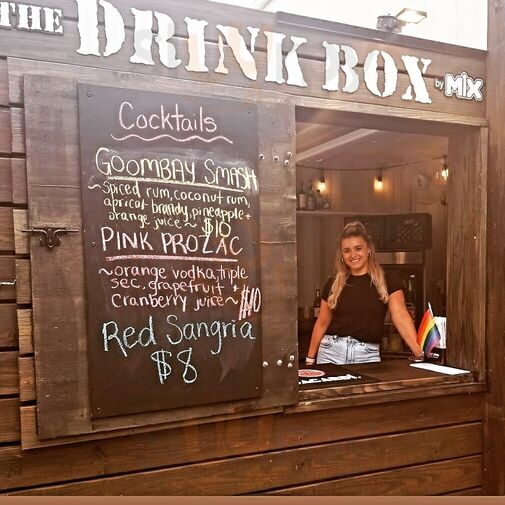 THE DRINK BOX by MIX
Cocktails
GOOMBAY SMASH
~spiced rum, coconut rum,
apricot brandy, pineapple +
orange juice ~ $10
PINK PROZAC
~orange vodka, triple
sec, grapefruit +
cranberry juice ~ $10
Red Sangria
$8